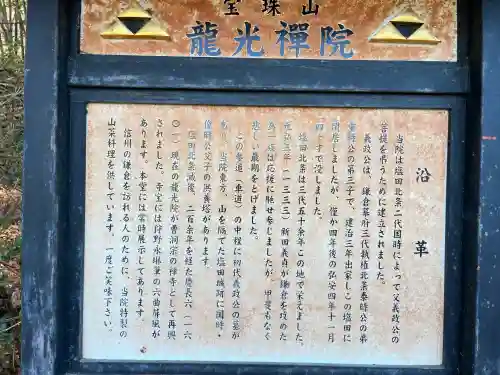 宝珠山
龍光禪院
沿革
当院は塩田北条二代国時によって父義政公の
菩提を弔うために建立されました。
義政公は、鎌倉幕府三代執権北条泰時公の弟
重時公の第三子で、建治三年出家しこの塩田に
閑居しましたが、僅か四年後の弘安四年十一月
四十才で没しました。
塩田北条は三代五十余年この地で栄えました。
元弘三年(一三三三)新田義貞が鎌倉を攻めた
為一族は応援に馳せ参じましたが、甲斐もなく
悲しい最期をとげました。
この参道(車道)の中程に初代義政公の墓が
あり、当院東方、山を隔てた塩田城跡に国時・
俊時公父子の供養塔があります。
塩田北条滅後、二百余年を経た慶長六(一六
〇一)現在の龍光院が曹洞宗の禅寺として再興
されました。寺宝には狩野永琳筆の六曲屏風が
あります。本堂には常時展示してあります。
信州の鎌倉を訪れる人のために、当院特製の
山菜料理を供しています。一度ご笑味下さい。